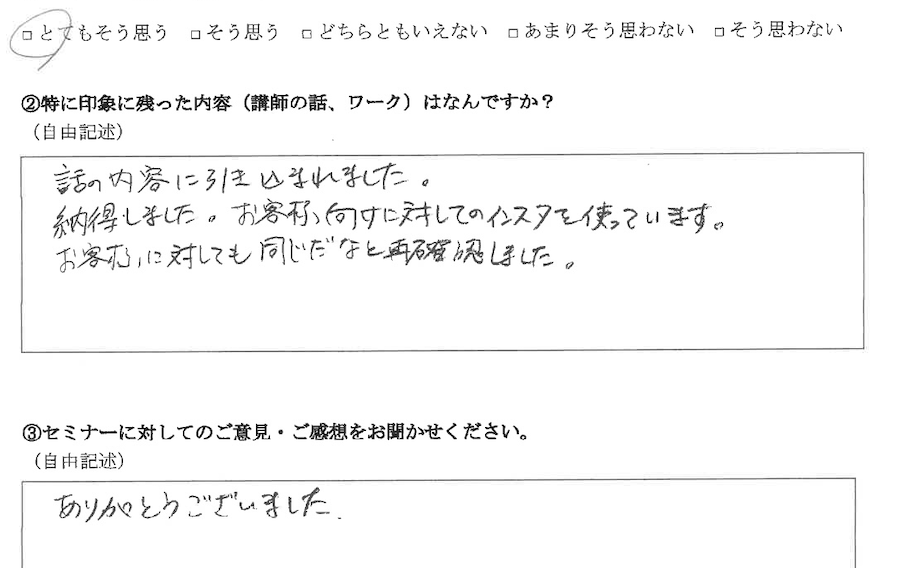 □とてもそう思う □そう思う □どちらともいえない □あまりそう思わない □そう思わない
②特に印象に残った内容（講師の話、ワーク）はなんですか？
（自由記述）
話の内容に引き込まれました。
納得しました。お客様向けに対してのインスタを使っています。
お客様に対しても同じだなと再確認しました。
③セミナーに対してのご意見・ご感想をお聞かせください。
（自由記述）
ありがとうございました.